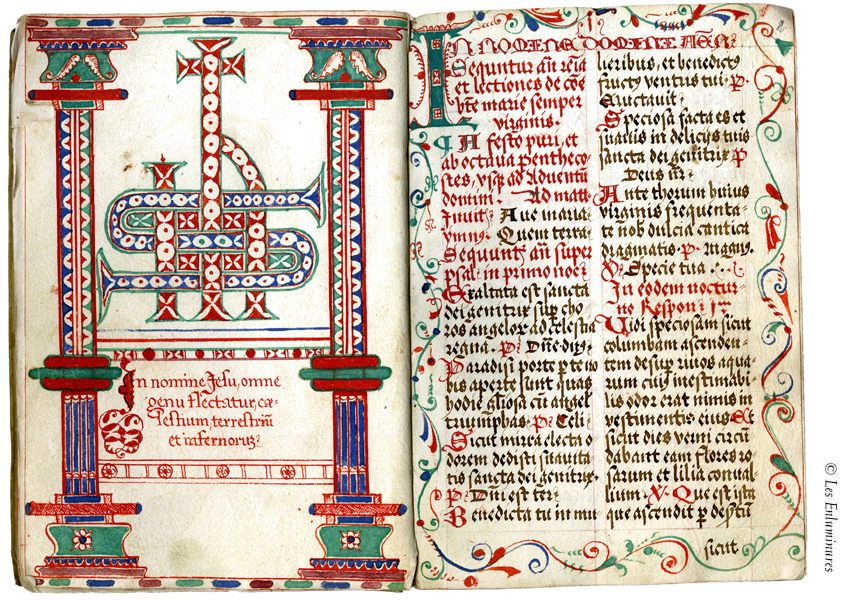 In nomine Jesu, omne
genu flectatur, cæ-
lestium, terrestriū
et infernorum
IN NOMINE DOMINI AMEN
Sequntur añ reia
et lectiones de cōe
bte marie semper
virginis.
A festo puri, et
ab octava penthecos
tes, vsqz ad Adventū
domini. Ad matt
Invit. Aue maria
Himn. Quem terra
Sequnt añ super
psal. in primo noc.
Exaltata est sancta
dei genitrix sup cho
ros angelor ad celestia
regna. P. Dñe dñs
Paradisi porte p te no
bis aperte sunt quæ
hodie gliosa cū angel
triumphas. P. Celi
Sicut mirra electa o
dorem dedisti suavita
tis sancta dei genitrix.
P. Dñi est ter
Benedicta tu in mu
lieribus, et benedictus
fructus ventris tui. P.
Eructauit
Speciosa facta es et
suauis in delicijs tuis
sancta dei genitrix P
Deus nr
Ante thorum huius
virginis frequenta-
te nob dulcia cantica
dragmatis. P. Magnus
Specie tua
In eodem noctur-
no Respon I
Vidi speciosam sicut
columbam ascenden-
tem desup riuos aqua-
rum cuius inestimabi-
lis odor erat nimis in
vestimentis eius. Et
sicut dies verni circū
dabant eam flores ro-
sarum et lilia conual-
lium. V. Que est ista
que ascendit p desertū
sicut
© Les Enluminures